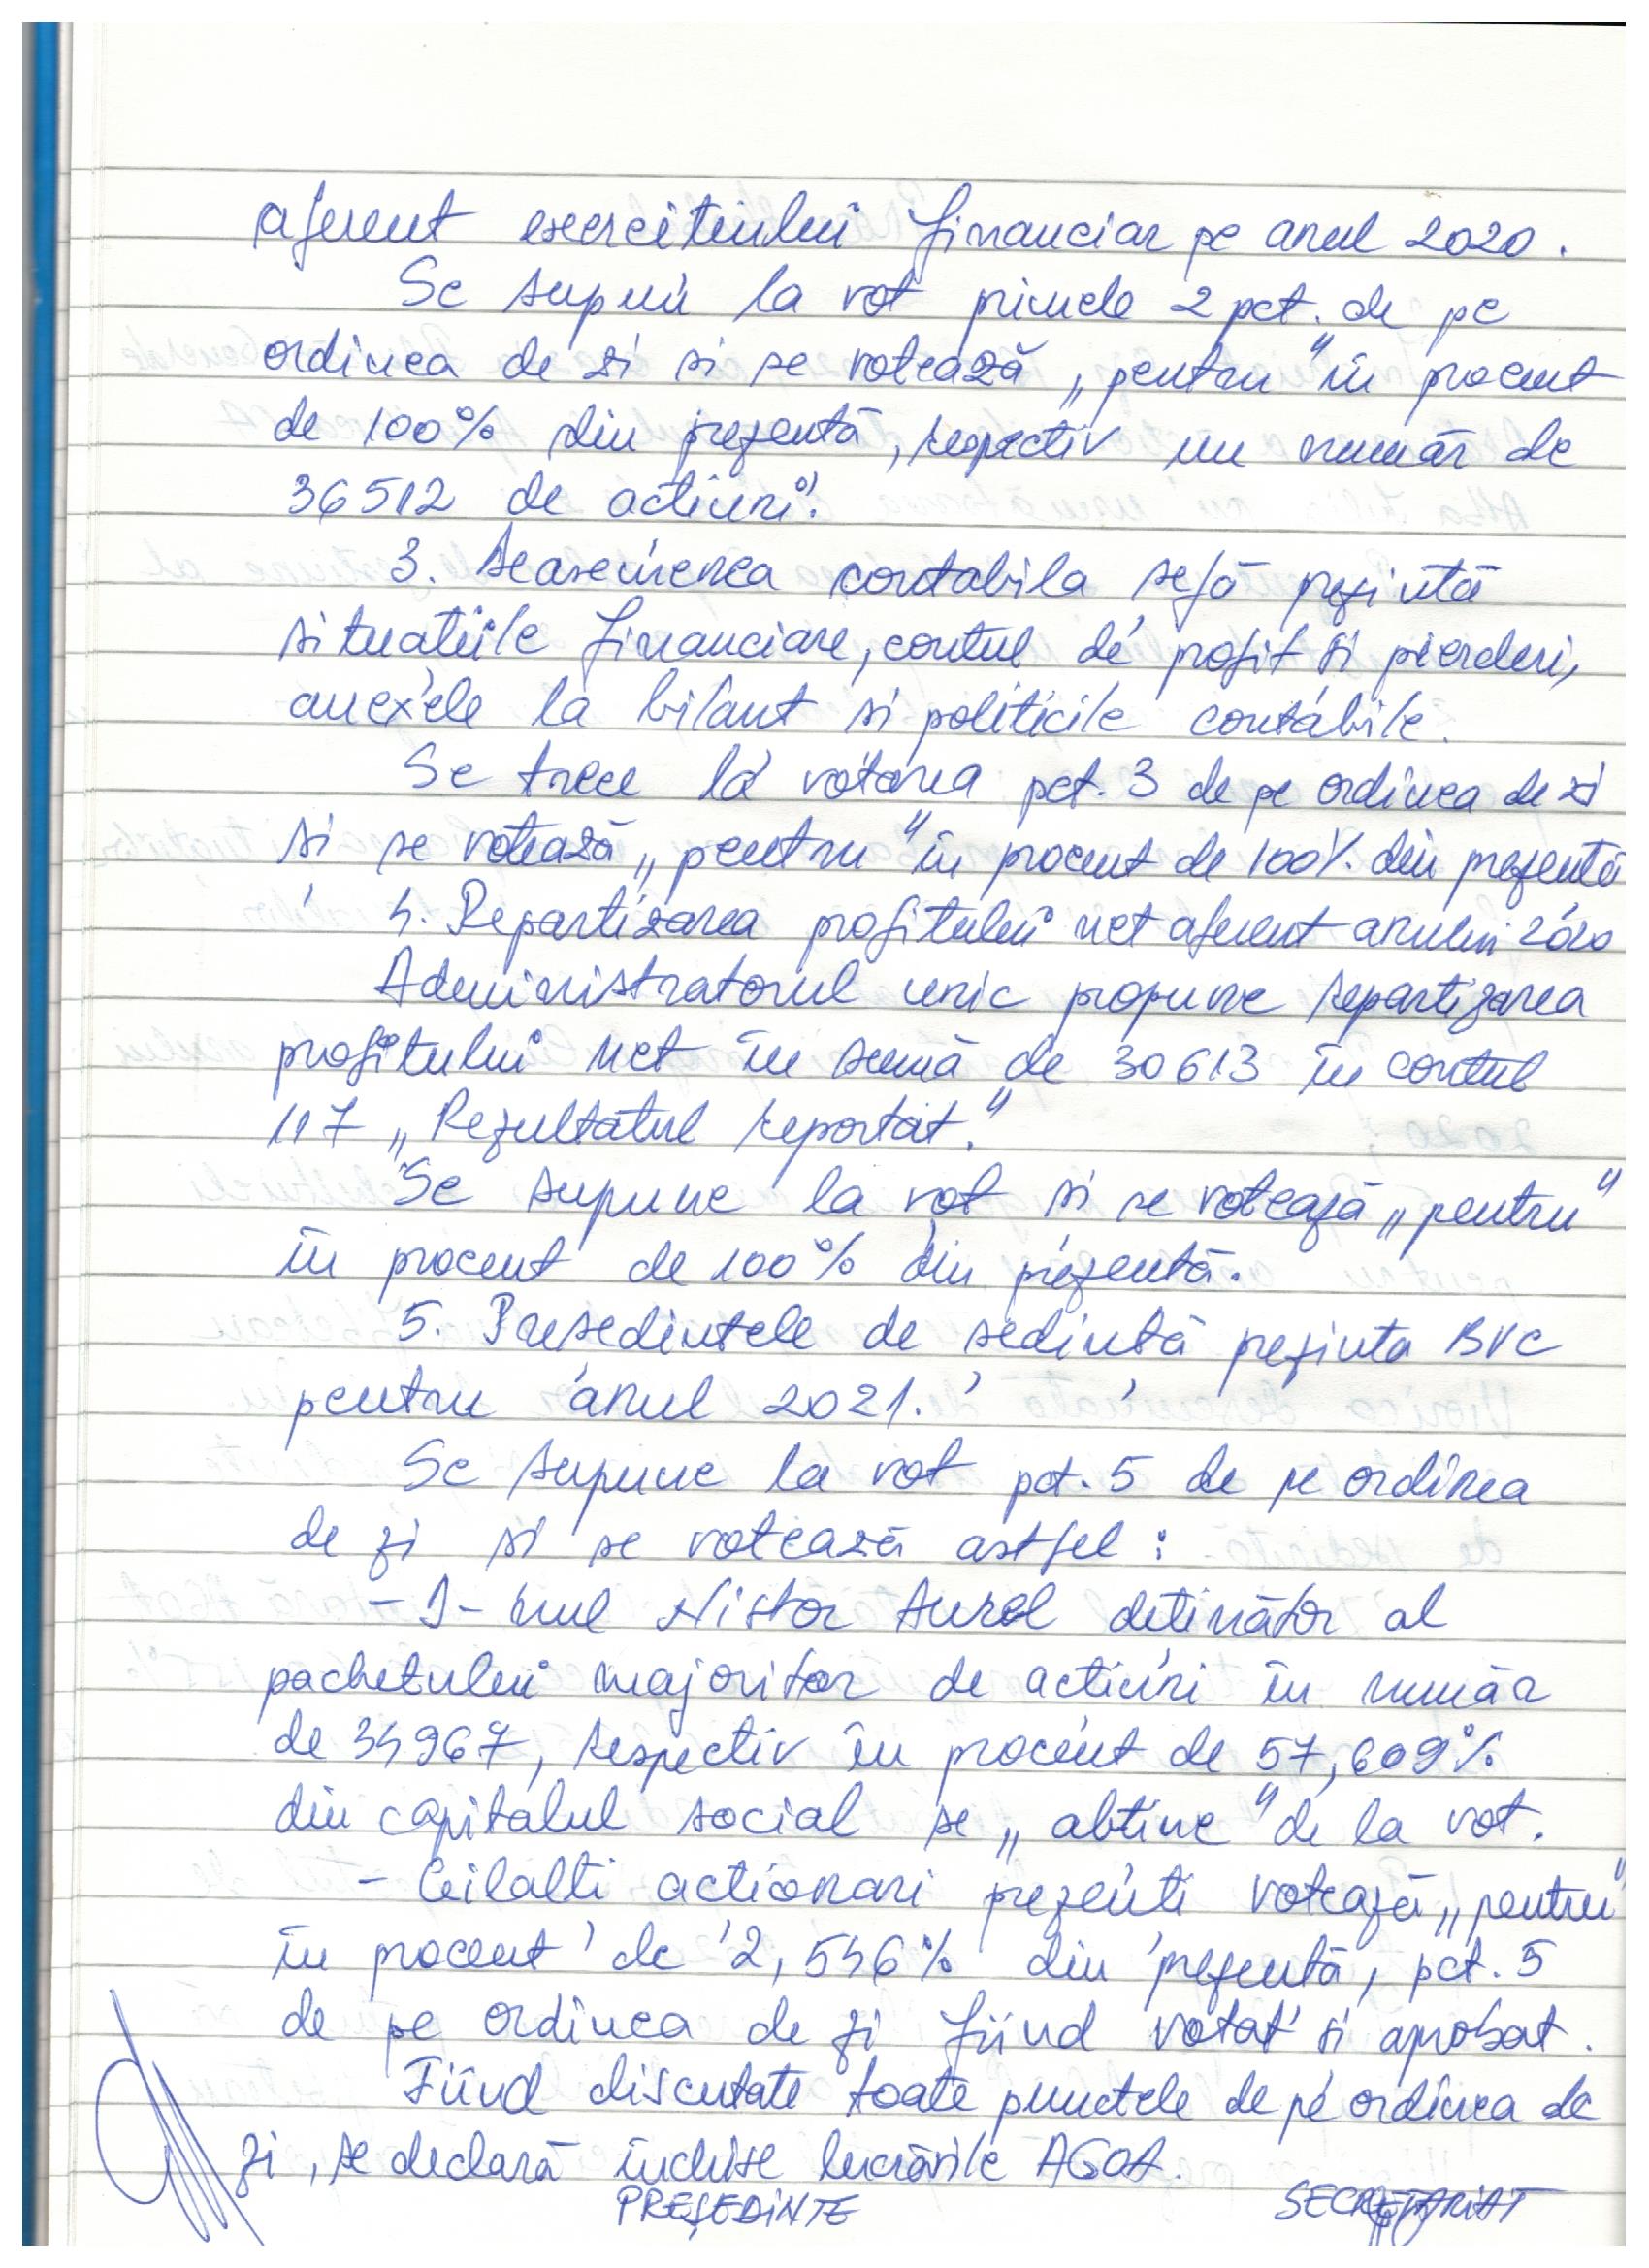 aferent exercitiului financiar pe anul 2020.
Se supun la vot primele 2 pct. de pe
ordinea de zi si se votează „pentru" în procent
de 100% din prezentă, respectiv un număr de
36512 de actiuni.
3. Deasemenea contabila sefă prezintă
situatiile financiare, contul de profit si pierderi,
anexele la bilant si politicile contabile.
Se trece la votarea pct. 3 de pe ordinea de zi
si se votează „pentru" în procent de 100% din prezentă
4. Repartizarea profitului net aferent anului 2020
Administratorul unic propune repartizarea
profitului net în sumă de 30613 în contul
117 „Rezultatul reportat."
Se supune la vot si se votează „pentru"
în procent de 100% din prezentă.
5. Presedintele de sedintă prezinta BVC
pentru anul 2021.
Se supune la vot pct. 5 de pe ordinea
de zi si se votează astfel:
- D-nul Nistor Aurel detinător al
pachetului majoritar de actiuni în număr
de 34967, respectiv în procent de 57,609%
din capitalul social se „abtine" de la vot.
- Ceilalti actionari prezenti votează „pentru"
în procent de 2,546% din prezentă, pct. 5
de pe ordinea de zi fiind votat si aprobat.
Fiind discutate toate punctele de pe ordinea de
zi, se declară închise lucrările AGOA.
PREŞEDINTE SECRETARIAT